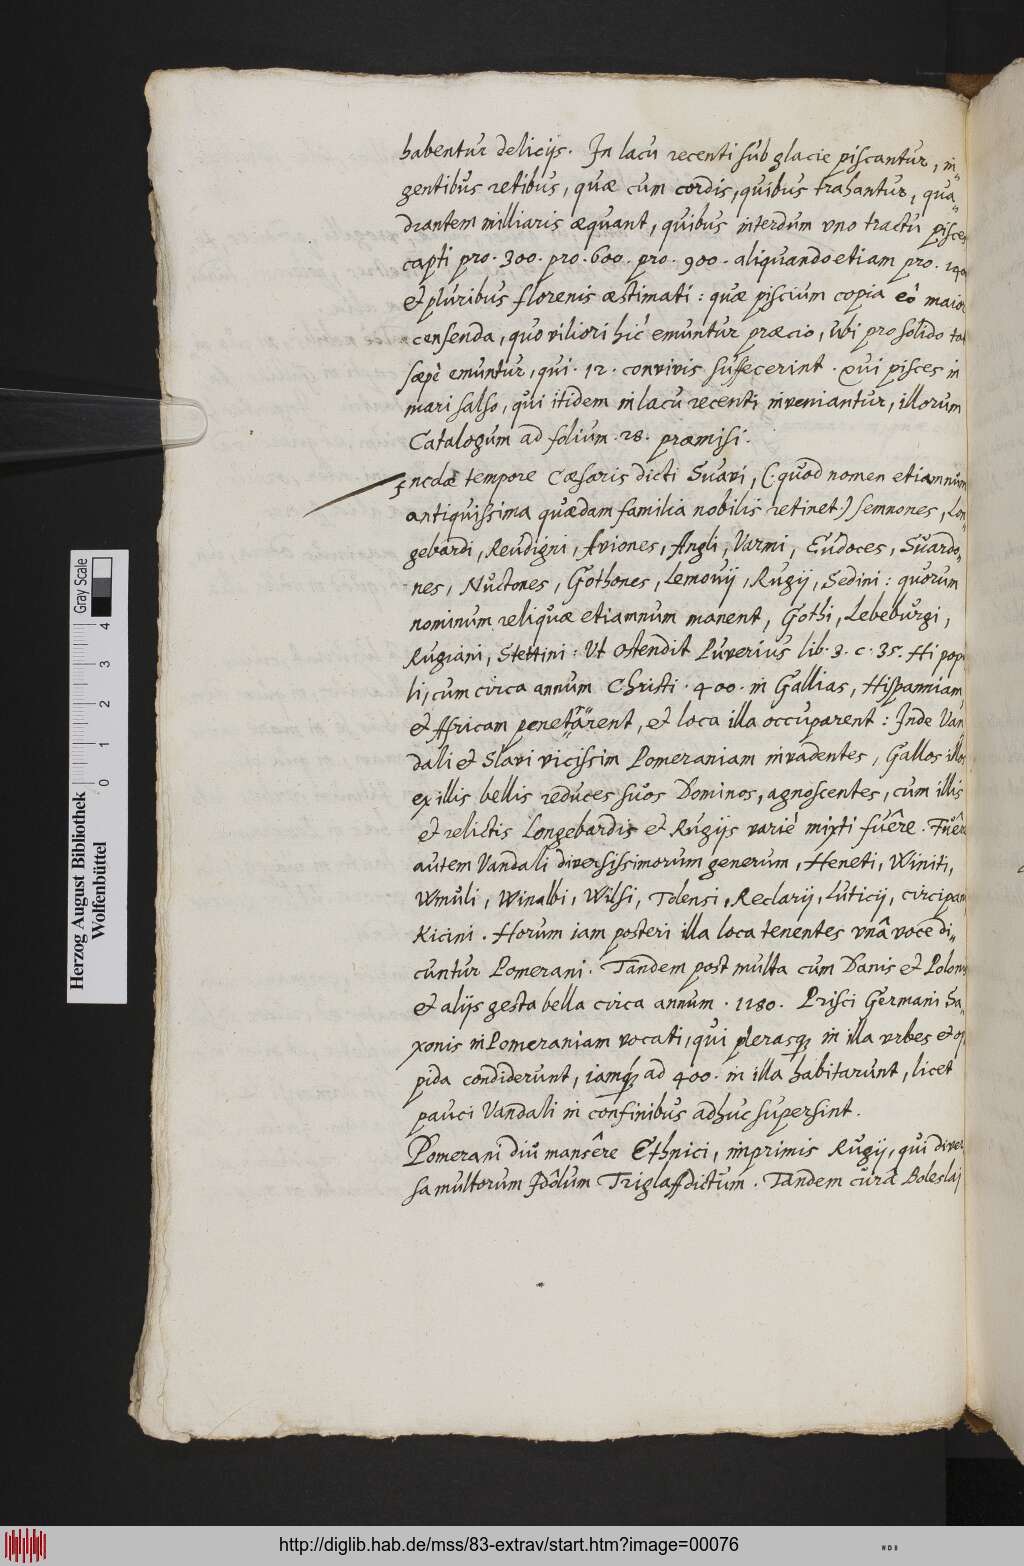 habentur delicijs. In lacu recenti sub glacie piscantur, in-
gentibus retibus, quæ cum cordis, quibus trahantur, qua-
drantem milliaris æquant, quibus interdum vno tractu pisces
capti pro. 300. pro. 600. pro. 900. aliquando etiam pro.
et pluribus florenis æstimati: quæ piscium copia eò maior
censenda, quo viliori hic emuntur præcio, ubi pro solido tot
sæpè emuntur, qui. 12. convivis suffecerint. Qui pisces in
mari salso, qui itidem in lacu recenti inveniantur, illorum
Catalogum ad folium. 28. præmisi.
Incolæ tempore Cæsaris dicti Suavi, (quod nomen etiamnum
antiquissima quædam familia nobilis retinet) Semnones, Lon-
gebardi, Reudigni, Aviones, Angli, Varmi, Eudoces, Suardo-
nes, Nuctones, Gothones, Lemovij, Rugij, Sedini: quorum
nominum reliquæ etiamnum manent, Gothi, Lebeburgi,
Rugiani, Stettini: Ut ostendit Luverius lib. 3. c. 35. Hi popu
li, cum circa annum Christi. 400. in Gallias, Hispanniam
et Africam penetrarent, et loca illa occuparent: Inde Van
dali et Slavi vicissim Pomeraniam invadentes, Gallos illos
ex illis bellis reduces suos Dominos, agnoscentes, cum illis
et relictis Longebardis et Rugijs varié mixti fuêre. Fuêre
autem Vandali diversissimorum generum, Heneti, Winiti,
Wmuli, Winalbi, Wilsi, Tolensi, Reclarij, Luticij, circipani
Kicini. Horum iam posteri illa loca tenentes vnâ voce di-
cuntur Pomerani. Tandem post multa cum Danis et Polonis
et alijs gesta bella circa annum. 1180. Prisci Germani Sa-
xonis in Pomeraniam vocati, qui plerasq; in illa vrbes et op
pida condiderunt, iamq; ad 400. in illa habitarunt, licet
pauci Vandali in confinibus adhuc supersint.
Pomerani diu mansêre Ethnici, inprimis Rugij, qui diver
sa multorum Idôlum Triglaff dictum. Tandem curâ Boleslaj
Herzog August Bibliothek
Wolfenbüttel
Gray Scale
0 1 2 3 4
http://diglib.hab.de/mss/83-extrav/start.htm?image=00076